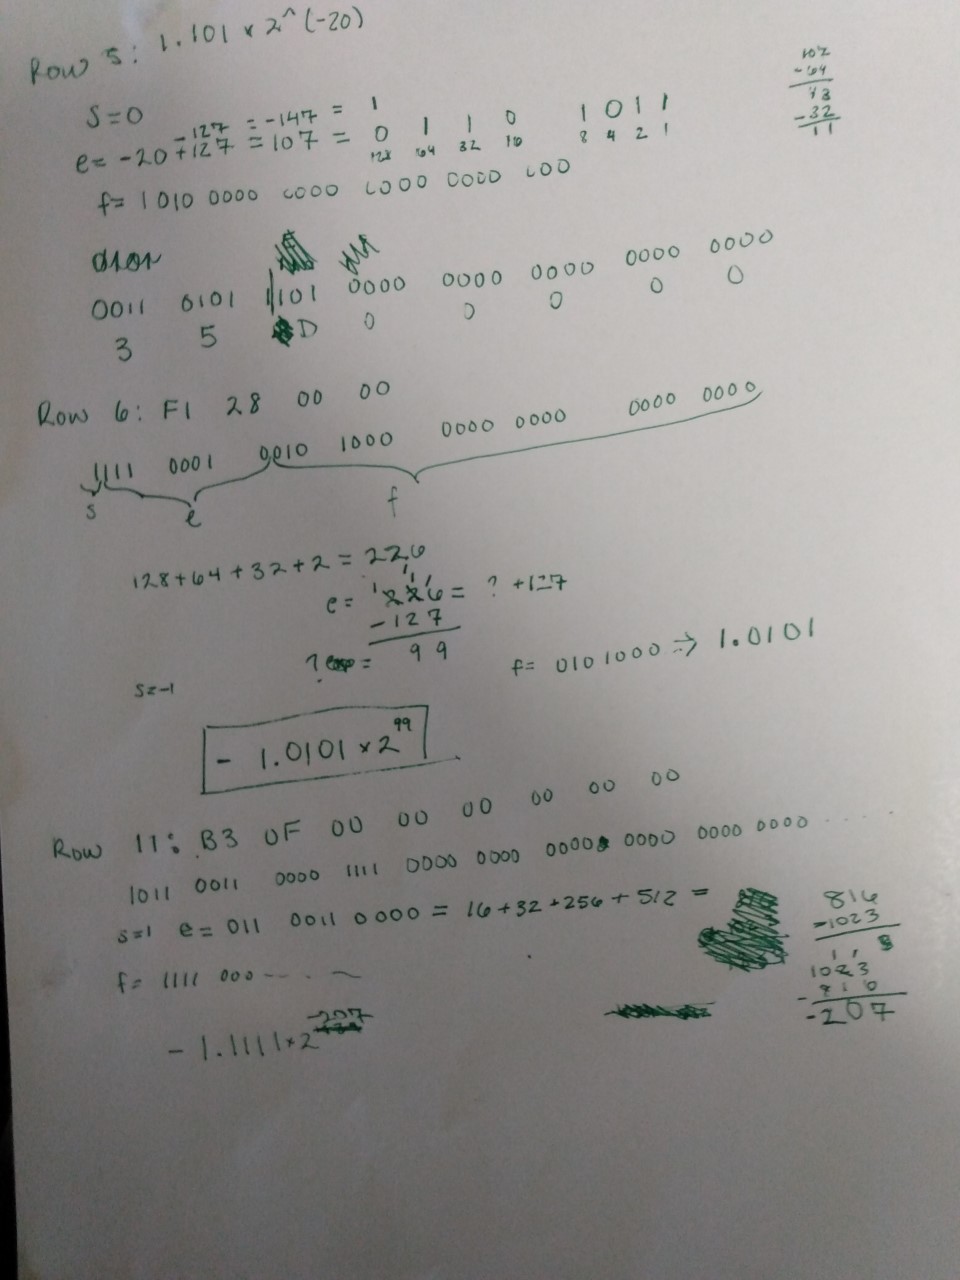 Row 5: 1.101 x 2^(-20)
S=0
-127 = -147 = 1
e= -20+127 = 107 = 0 1 1 0 1 0 1 1
128 64 32 16 8 4 2 1
107
-64
43
-32
11
f= 1010 0000 0000 0000 0000 000
0011 0101 1101 0000 0000 0000 0000 0000
3 5 D 0 0 0 0 0
Row 6: F1 28 00 00
1111 0001 0010 1000 0000 0000 0000 0000
s e f
128+64+32+2 = 226
e= 226 = ? +127
-127
? exp = 99
f= 0101000 => 1.0101
s=-1
- 1.0101 x 2^99
Row 11: B3 0F 00 00 00 00 00 00
1011 0011 0000 1111 0000 0000 0000 0000 0000 0000 .....
s=1 e= 011 0011 0000 = 16+32+256+512 =
816
-1023
1023
- 816
-207
f= 1111 000 --..~
- 1.1111*2^-207